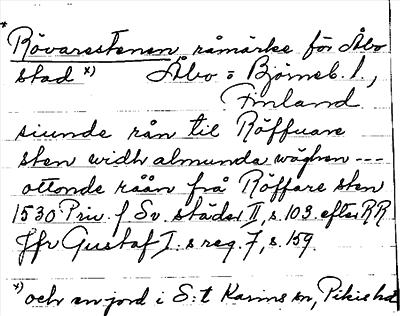 * Rövarestenen, råmärke för Åbo
stad x) Åbo o Björneb. l.,
Finland
siunde rån til Röffuare
sten widh almunda wäghen ---
ottonde råån från Röffare sten
1530 Priv. f Sv. städer II, s. 103. efter RR
Jfr Gustaf I:s reg. 7, s. 159.
x) och en jord i S:t Karins sn, Pikis hd